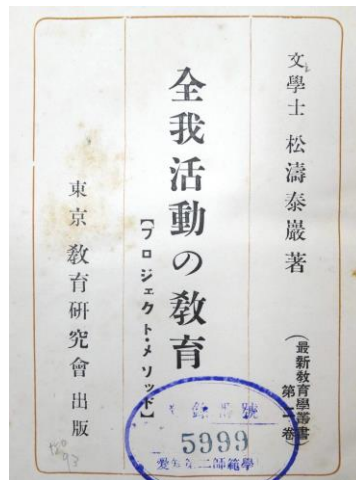 文學士 松濤泰巖著
(最新教育學叢書第二卷)
全我活動の教育
【プロジェクト・メソッド】
東京 教育研究會 出版
5999